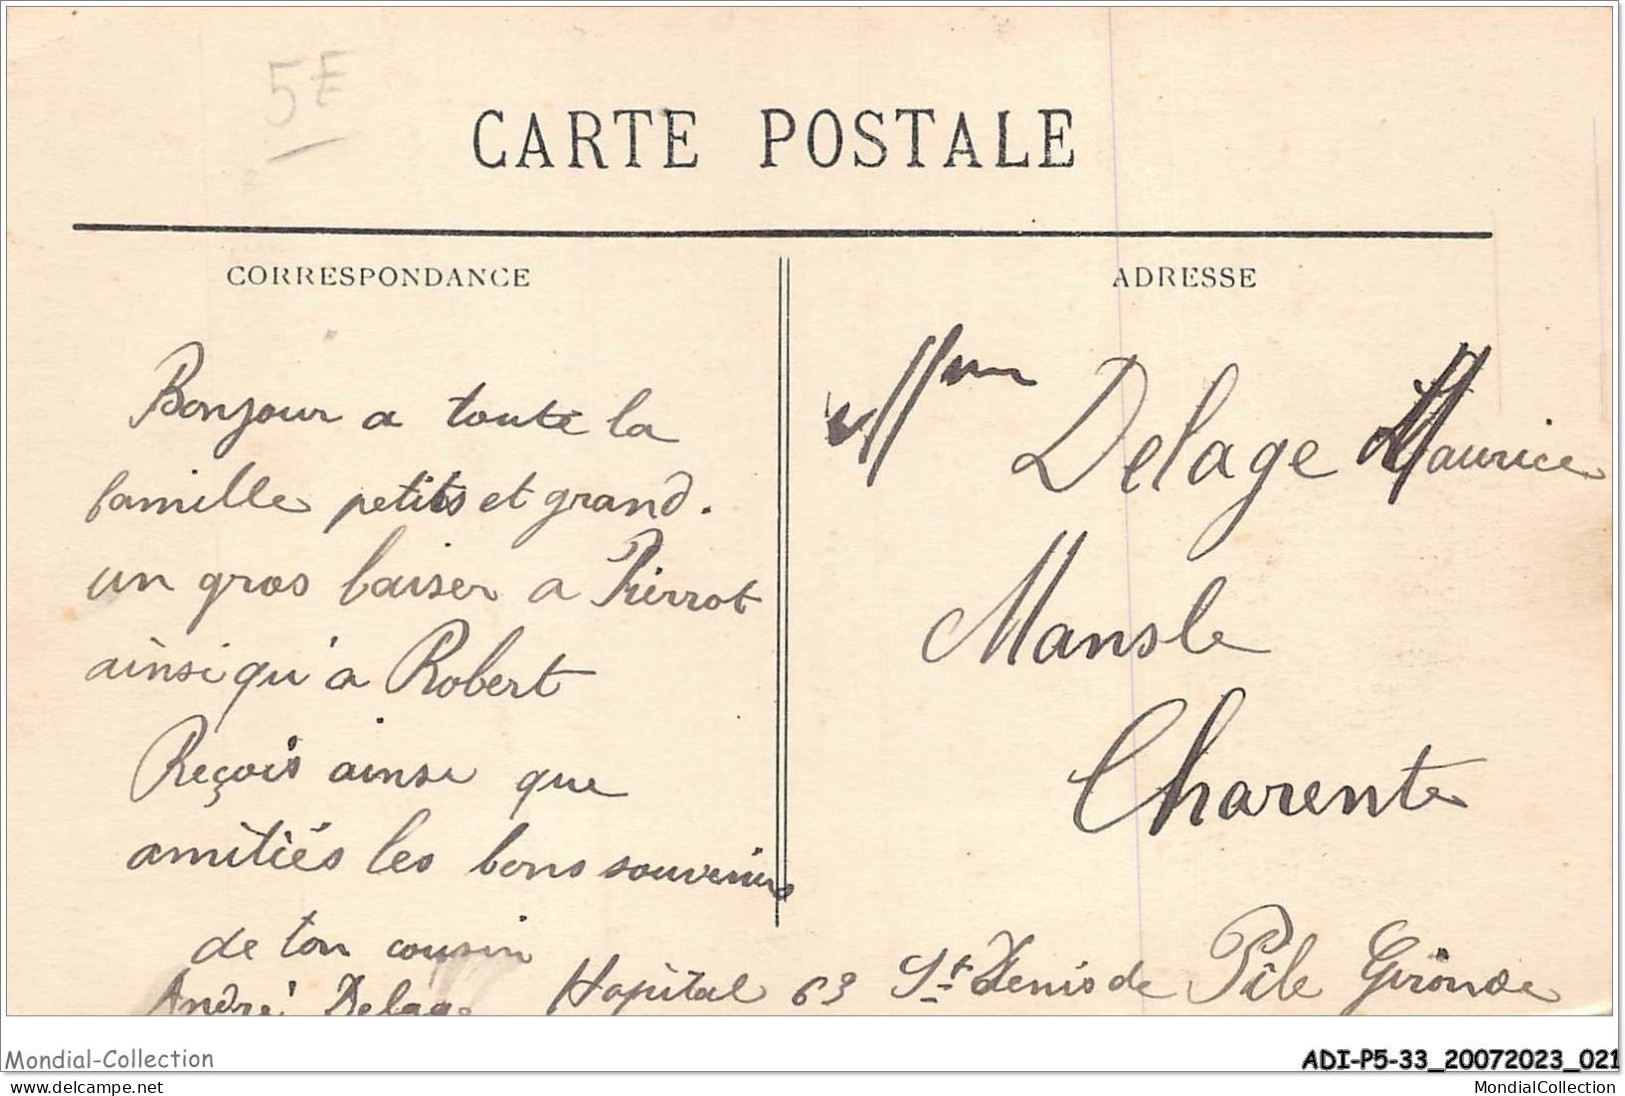 5F
CARTE POSTALE
CORRESPONDANCE
Bonjour a toute la
famille petits et grand.
un gros baiser a Pierrot
ainsi qu'a Robert
Reçois ainsi que
amitiés les bons souvenirs
de ton cousin
André Delage Hopital 63 St Denis de Pile Gironde
ADRESSE
Mme Delage Maurice
Mansle
Charente
Mondial-Collection
ADI-P5-33_20072023_021
www.delcampe.net
MondialCollection